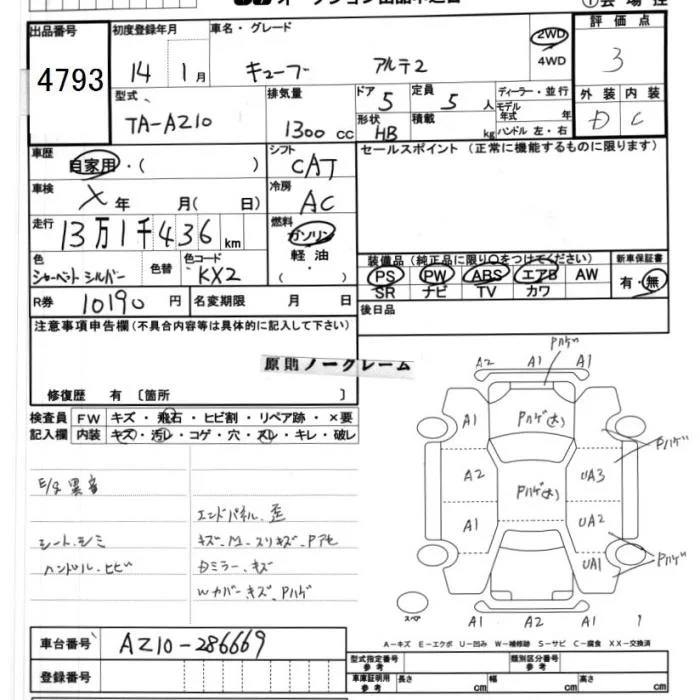 出品番号
4793
初度登録年月
14年 1月
車名・グレード
キューブ アルテ2
2WD
4WD
評価点
3
外装 内装
D C
型式
TA-AZ10
排気量
1300 cc
ドア 5
定員 5 人
形状 HB
積載 kg
ディーラー・並行
モデル年式 年
ハンドル 左・右
車歴
自家用・( )
シフト
CAT
セールスポイント (正常に機能するものに限ります)
車検
X年 月( 日)
冷房
AC
走行
13万1千436 km
燃料
ガソリン
軽油
・
( )
色
シャーベットシルバー
色替
色コード
KX2
装備品 (純正品に限り○をつけてください)
PS PW ABS エアB AW
SR ナビ TV カワ
新車保証書
有・無
R券 10190 円
名変期限 月 日
後日品
注意事項申告欄 (不具合内容等は具体的に記入して下さい)
原則ノークレーム
修復歴 有 〔箇所 〕
検査員
記入欄
FW キズ・飛石・ヒビ割・リペア跡・×要
内装 キズ・汚レ・コゲ・穴・スレ・キレ・破レ
E/g 異音
シート.シミ
ハンドル.ヒビ
エンドパネル.歪
キズ.M.スリキズ.Pアセ
Dミラー.キズ
Wカバー.キズ.Pハゲ
Pハゲ
A2 A1 A1
A1 Pハゲ(大)
Pハゲ
A2 Pハゲ(大) UA3
A1 UA2
Pハゲ
UA1
スペア
A1 A2 A1 1
A-キズ E-エクボ U-凹み W-補修跡 S-サビ C-腐食 XX-交換済
車台番号
AZ10-286669
登録番号
型式指定番号
参考
類別区分番号
参考
車庫証明用
参考
長さ cm 幅 cm 高さ cm